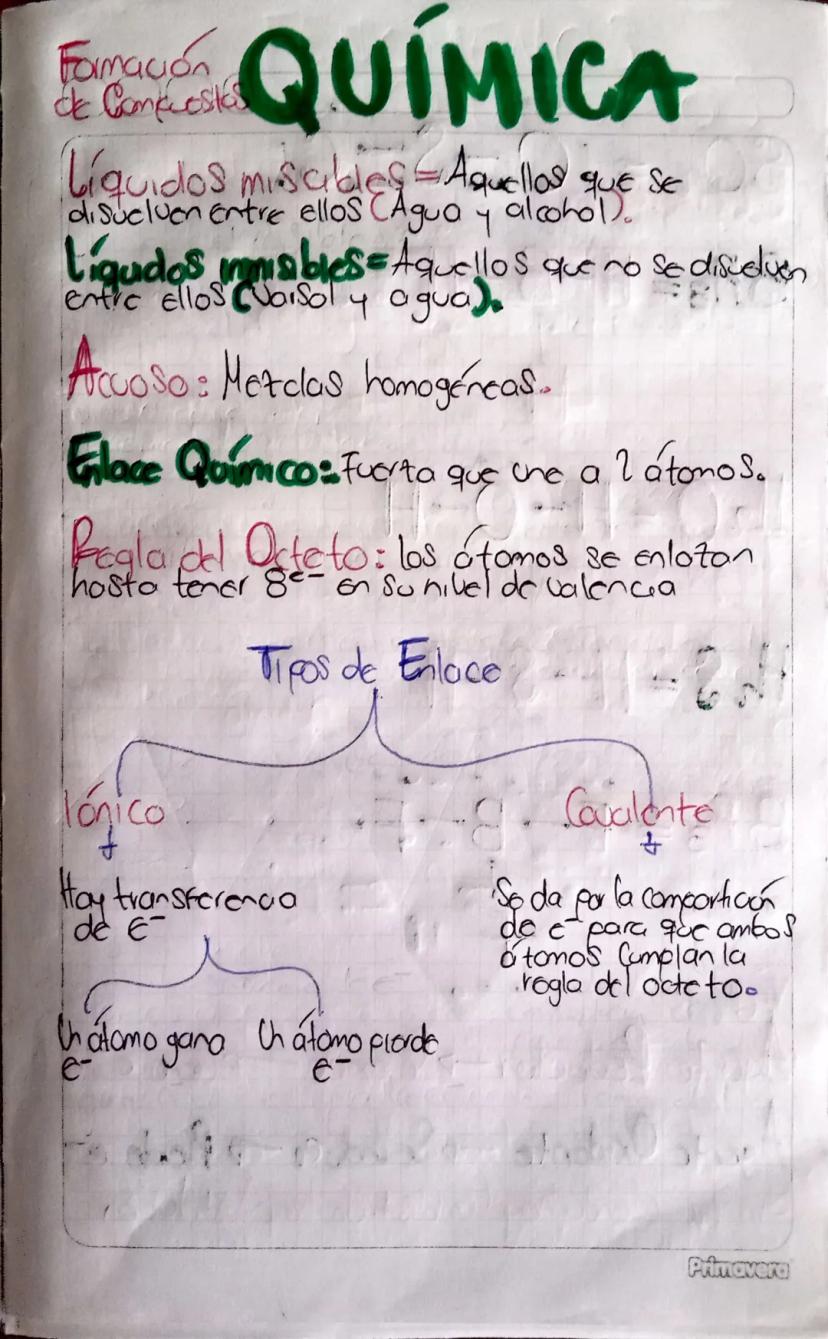 Formación
de Compuestos
QUÍMICA
Líquidos miscibles = Aquellos que se
disuelven entre ellos (Agua y alcohol).
Líquidos inmisibles = Aquellos que no se disuelven
entre ellos (Varsol y agua).
Acuoso: Mezclas homogéneas.
Enlace Químico: Fuerza que une a 2 átomos.
Regla del Octeto: los átomos se enlazan
hasta tener 8e- en su nivel de valencia
Tipos de Enlace
Iónico
Covalente
Hay transferencia
de e-
Se da por la compartición
de e- para que ambos
átomos cumplan la
regla del octeto.
Un átomo gana
e-
Un átomo pierde
e-
Primavera